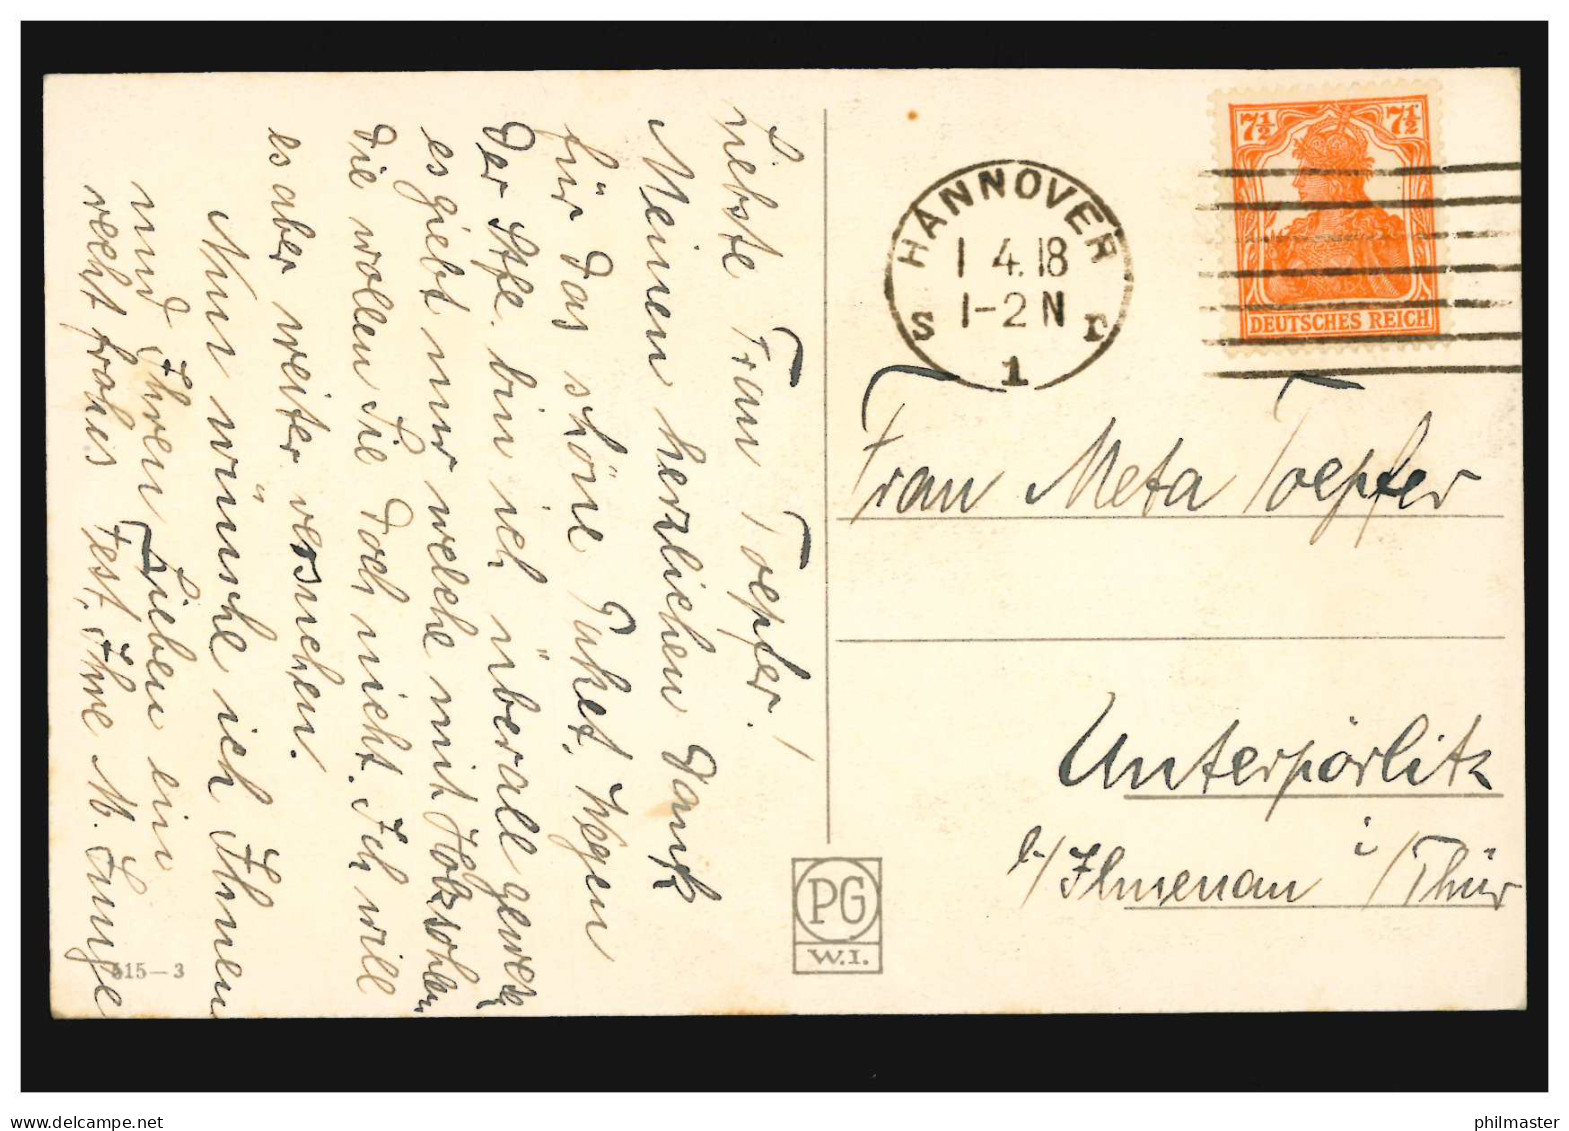 Liebste Frau Toepfer!
Meinen herzlichen Dank
für das schöne Paket. Wegen
der Stfe. bin ich überall gewesen
es giebt nur welche mit Holzsohlen
die wollen Sie doch nicht. Ich will
es aber weiter versuchen.
Nun wünsche ich Ihnen
und Ihren Lieben ein
recht frohes Fest. Ihre M. Lunge
515-3
HANNOVER
1 4.18
1-2 N
S D
1
7½ 7½
DEUTSCHES REICH
Frau Meta Toepfer
Unterpörlitz
b/Ilmenau i/Thür
PG
W.I.
www.delcampe.net
philmaster